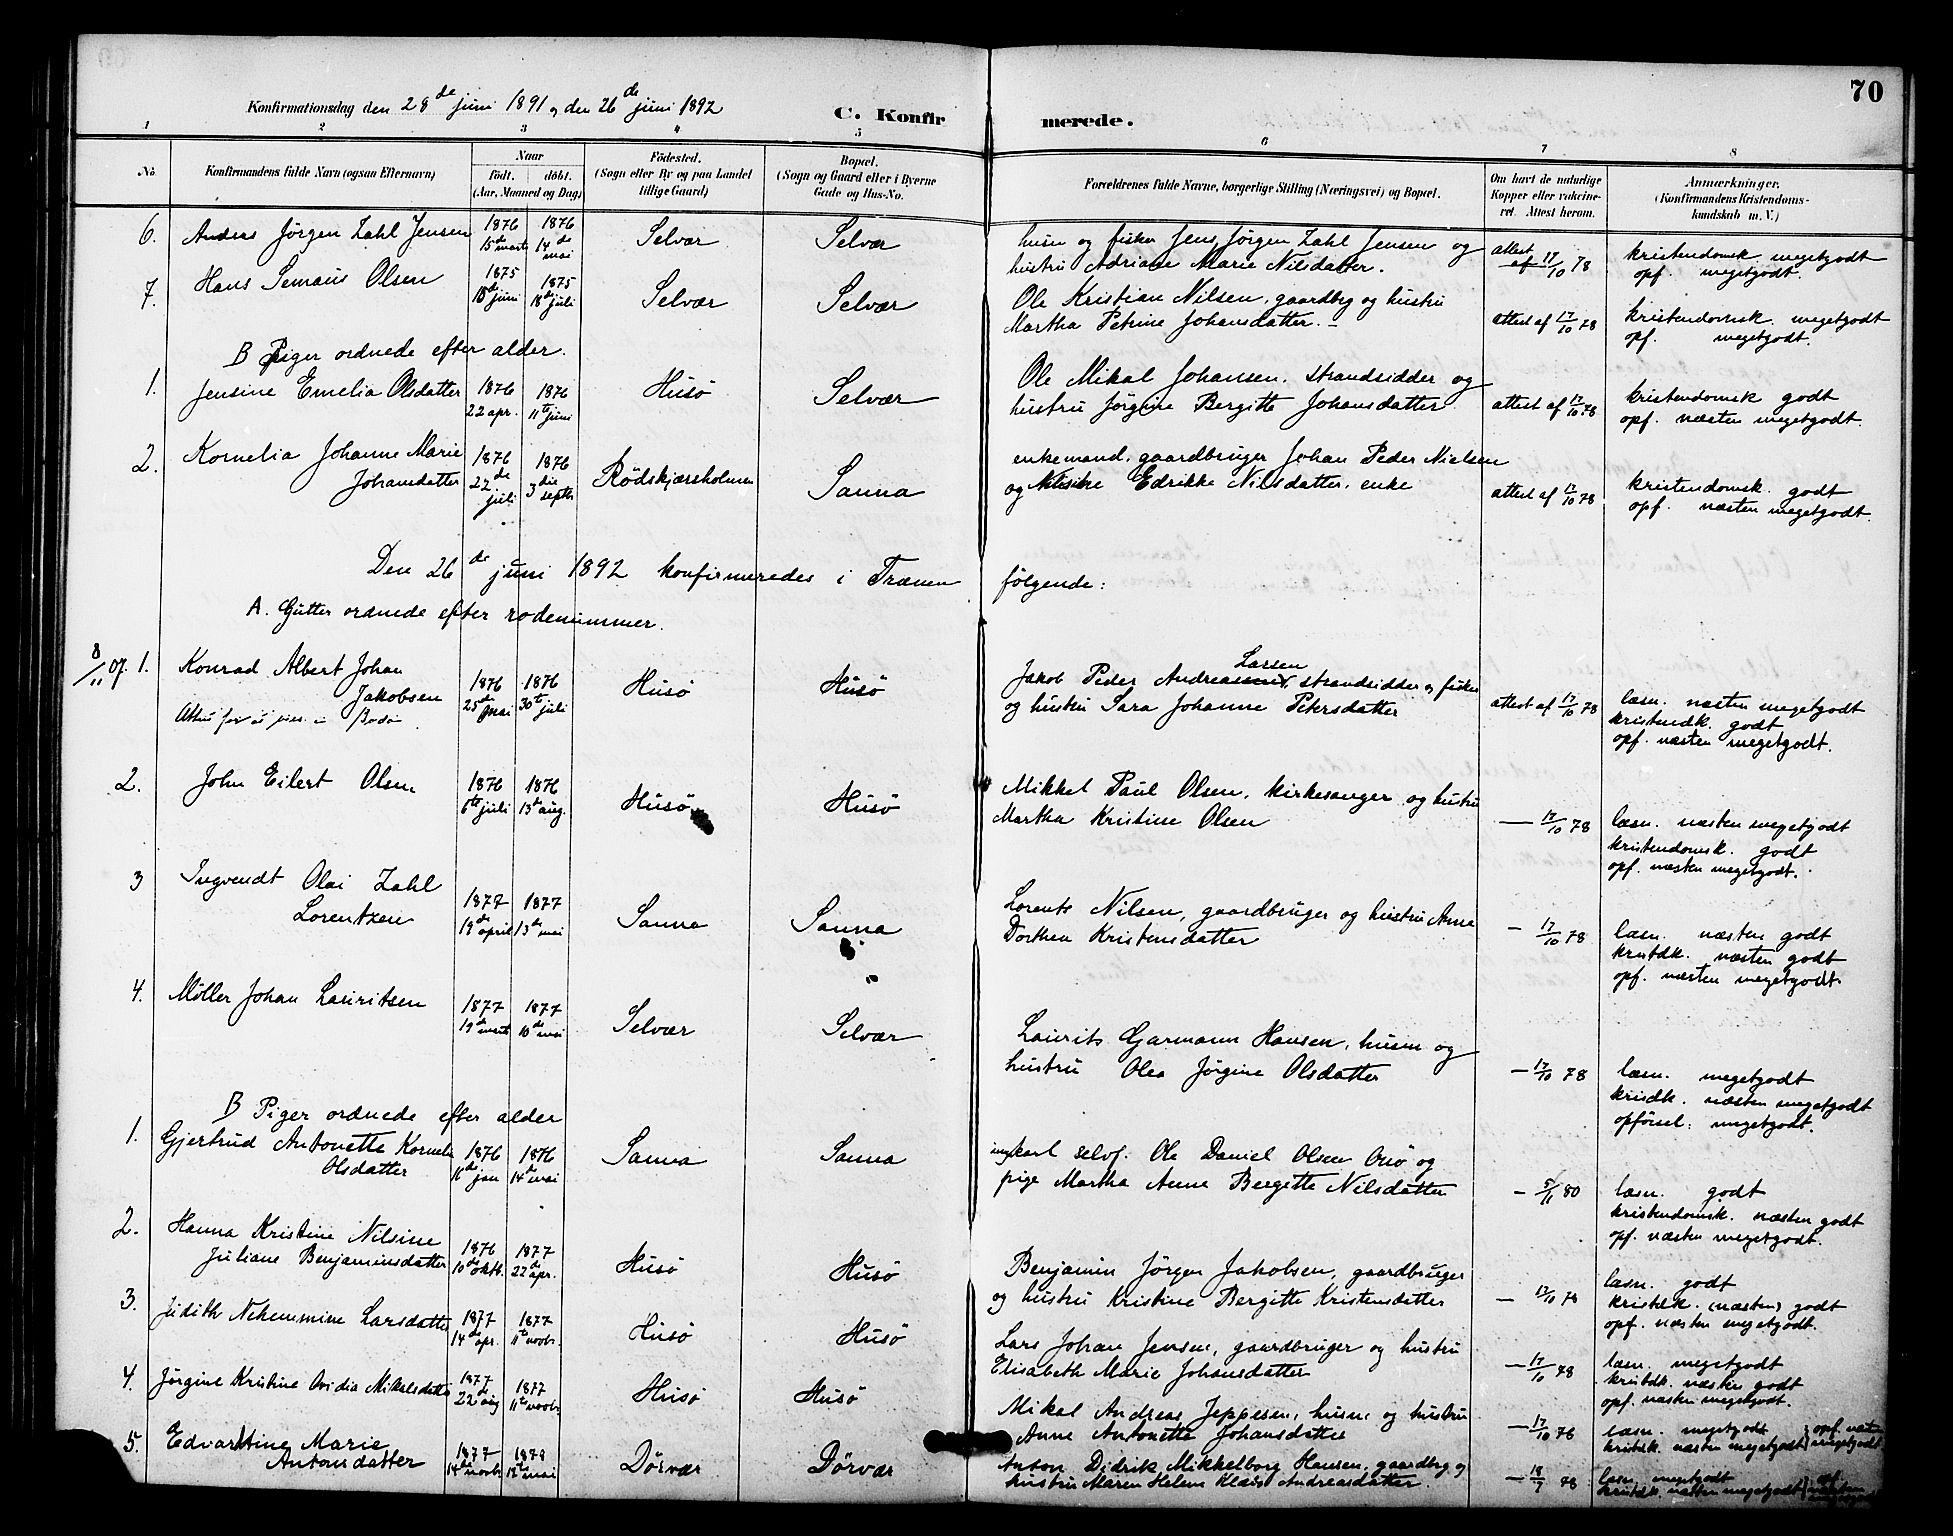 70
Konfirmationsdag den 28de juni 1891 og den 26de juni 1892
C. Konfirmerede.
1 2 3 4 5 6 7 8
No.
Konfirmandens fulde Navn (ogsaa Efternavn)
Naar
födt. döbt.
(Aar, Maaned og Dag)
Födested.
(Sogn eller By og paa Landet
tillige Gaard)
Bopæl.
(Sogn og Gaard eller i Byerne
Gade og Hus-No.
Forældrenes fulde Navne, borgerlige Stilling (Næringsvei) og Bopæl.
Om havt de naturlige
Kopper eller vakcine-
ret. Attest herom.
Anmærkninger.
(Konfirmandens Kristendoms-
kundskab m. V.)
6. Andreas Jørgen Zahl Jensen 1876 15de marts 1876 14de mai Selvær Selvær
husm og fisker Jens Jørgen Zahl Jensen og
hustru Adriane Marie Nilsdatter.
attest af 17/10 78
kristendomsk megetgodt
opf. megetgodt.
7. Hans Semaus Olsen 1875 18de juni 1875 18de juli Selvær Selvær
Ole Kristian Nilsen, gaardbg og hustru
Martha Petrine Johansdatter. –
attest af 17/10 78
kristendomsk. megetgodt
opf. megetgodt.
B Piger ordnede efter alder.
1. Jensine Emelia Olsdatter 1876 22 apr. 1876 11te juni Husö Selvær
Ole Mikal Johansen, strandsidder og
hustru Jørgine Bergitte Johansdatter
attest af 17/10 78
kristendomsk godt
opf. næsten megetgodt.
2. Kornelia Johanne Marie
Johansdatter 1876 22de juli 1876 3die septbr Rödskjærsholmen Sanna
enkemand, gaardbruger Johan Peder Nielsen
og Edrikke Nilsdatter, enke
attest af 17/10 78
kristendomsk. godt
opf. næsten megetgodt.
Den 26de juni 1892 konfirmeredes i Trænen følgende:
A. Gutter ordnede efter rodenummer.
8/11 07. 1. Konrad Albert Johan
Jakobsen 1876 25de mai 1876 30te juli Husö Husö
Attest for
Bodö
Larsen
Jakob Peder Andreas strandsidder og fisker
og hustru Sara Johanne Petersdatter
attest af 17/10 78
læsn. næsten megetgodt
kristendk. godt
opf. næsten megetgodt.
2. John Eilert Olsen 1876 6te juli 1876 13de aug. Husö Husö
Mikkel Paul Olsen, kirkesanger og hustru
Martha Kristine Olsen
— 17/10 78
læsn. næsten megetgodt
kristendomsk. godt
opf. næsten megetgodt.
3 Ingvendt Olai Zahl
Lorentzen 1877 19de april 1877 13de mai Sanna Sanna
Lorents Nilsen, gaardbruger og hustru Anne
Dorthea Kristensdatter
– 17/10 78
læsn. næsten godt
kristdk. næsten godt
opf. næsten megetgodt.
4. Møller Johan Lauritsen 1877 19de marts 1877 10de mai Selvær Selvær
Laurits Garmann Hansen, husm og
hustru Olea Jørgine Olsdatter
– 17/10 78
læsn. megetgodt
krisdk. næsten megetgodt
opförsel: megetgodt.
B Piger ordnede efter alder
1. Gjertrud Antonette Kornelia
Olsdatter 1876 16de jan 1876 14de mai Sanna Sanna
ungkarl selvf. Ole Daniel Olsen Onö og
pige Martha Anne Bergitte Nilsdatter
– 5/11 80
læsn. godt
kristendomsk. næsten godt
opf. næsten megetgodt.
2. Hanna Kristine Nilsine
Juliane Benjaminsdatter 1876 10de oktb. 1877 22de apr. Husö Husö
Benjamin Jörgen Jakobsen, gaardbruger
og hustru Kristine Bergitte Kristensdatter
— 17/10 78
læsn. godt
kristdk. (næsten) godt
opf. næsten megetgodt.
3. Judith Nekemmine Larsdatter 1877 14de apr. 1877 11te novbr. Husö Husö
Lars Johan Jensen, gaardbruger og hustru
Elisabeth Marie Johansdatter
— 17/10 78
læsn. megetgodt
kristdk. næsten godt
opf. næsten megetgodt.
4. Jørgine Kristine Ovidia Mikalsdatter 1877 22de aug 1877 11te novbr. Husö Husö
Mikal Andreas Jeppesen, husm. og hustru
Anne Antonette Johansdatter
— 17/10 78
læsn. megetgodt
kristdk. næsten megetgodt
opf. næsten
megetgodt
5. Edvardtine Marie
Antonsdatter 1877 14de novbr 1878 12te mai Dörvær Dörvær
Anton Didrik Mikkelborg Hansen, gaardbrg og
hustru Maren Helene Klæbo Andreasdatter.
— 18/7 78
læsn. megetgodt
kristdk. næsten megetgodt
opf.
næsten